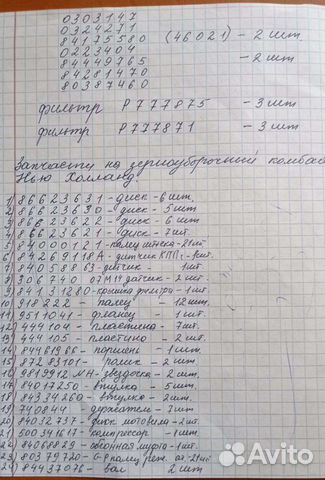 0303147
0324271
84175580 (46021) - 2 шт
0223404
84449765 - 2 шт
84281470
80387460
фильтр P777875 - 3 шт
фильтр P777871 - 3 шт
Запчасти на зерноуборочный комбай
Нью Холланд:
1) 86623631 - диск - 6 шт.
2) 86623630 - диск - 5 шт
3) 86623622 - диск - 6 шт
4) 86623621 - диск - 7 шт.
5) 84000121 - палец шнека - 21 шт
6) 84269118А - датчик КПП - 1 шт
7) 84058863 - датчик - 1 шт
8) 306740 07М14 датчик - 2 шт.
9) 84131280 - крышка фильтра - 1 шт
10) 918222 - палец - 12 шт.
11) 9511041 - фланец - 1 шт.
12) 444104 - пластина - 7 шт.
13) 444105 - пластина - 2 шт.
14) 84461966 - поршень - 1 шт.
15) 87283101 - ролик - 2 шт
16) 9819912 МН - звездочка - 2 шт
17) 84017250 - втулка - 5 шт.
18) 84334260 - втулка - 2 шт.
19) 740844 - держатель - 7 шт
20) 84032737 - диск мотовила - 2 шт
21) 500341617 - компрессор - 1 шт
22) 84068829 - обгонная муфта - 1 шт.
23) 80379720 - палец реж. ап. - 21 шт
24) 84437076 - вал 2 шт
Avito